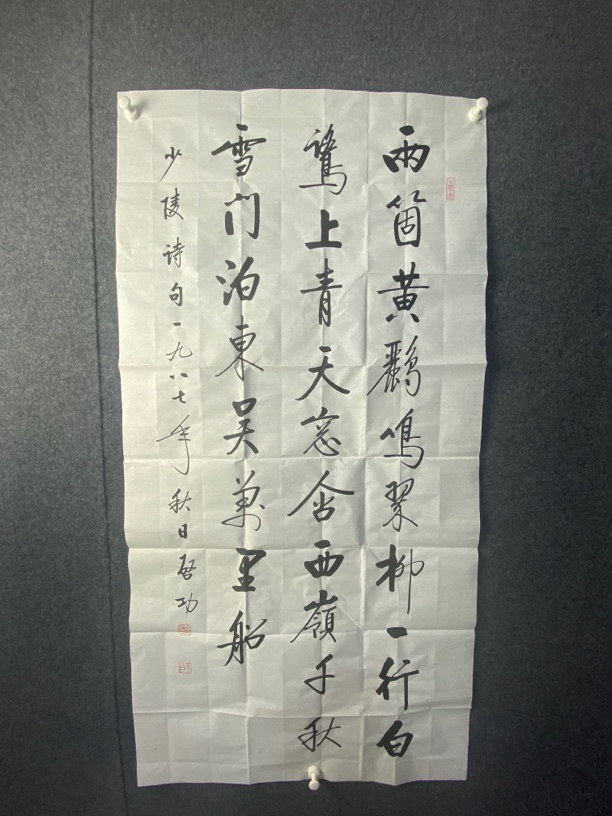 兩箇黃鸝鳴翠柳一行白
鷺上青天窓含西嶺千秋
雪门泊東吴萬里船
少陵诗句一九八七年秋日启功